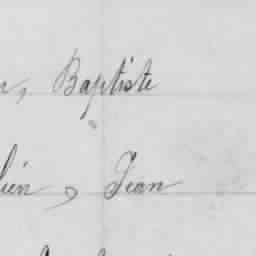 , Baptiste
lien, Jean